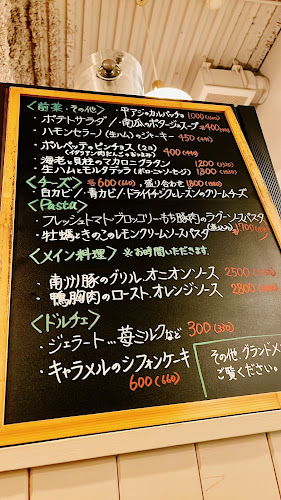 <前菜・その他>・平アジのカルパッチョ 1000(1100)
・ポテトサラダ/・南瓜のポタージュスープ 各400(440)
・ハモンセラーノ(生ハム)のジャーキー 450(495)
・ポルペッテのピンチョス(2コ) 400(440)
(イタリアン肉だんごのおつまみ)
・海老と貝柱のマカロニグラタン 1200(1320)
・生ハムとモルタデッラ(ボローニャソーセージ) 1800
<チーズ> 各600(660)・盛り合わせ1800(1980)
・白カビ/・青カビ/・ドライイチジクとレーズンのクリームチーズ
<Pasta>
・フレッシュトマト・ブロッコリー・もち豚肉のラグーソースパスタ
・牡蠣ときのこのレモンクリームソースパスタ 1700
<メイン料理> ※お時間いただきます。
・南州豚のグリル、オニオンソース 2500
・鴨胸肉のロースト、オレンジソース 2800
<ドルチェ>
・ジェラート…苺ミルクなど 300(330)
・キャラメルのシフォンケーキ
600(660)
その他、グランドメ
ご覧ください。